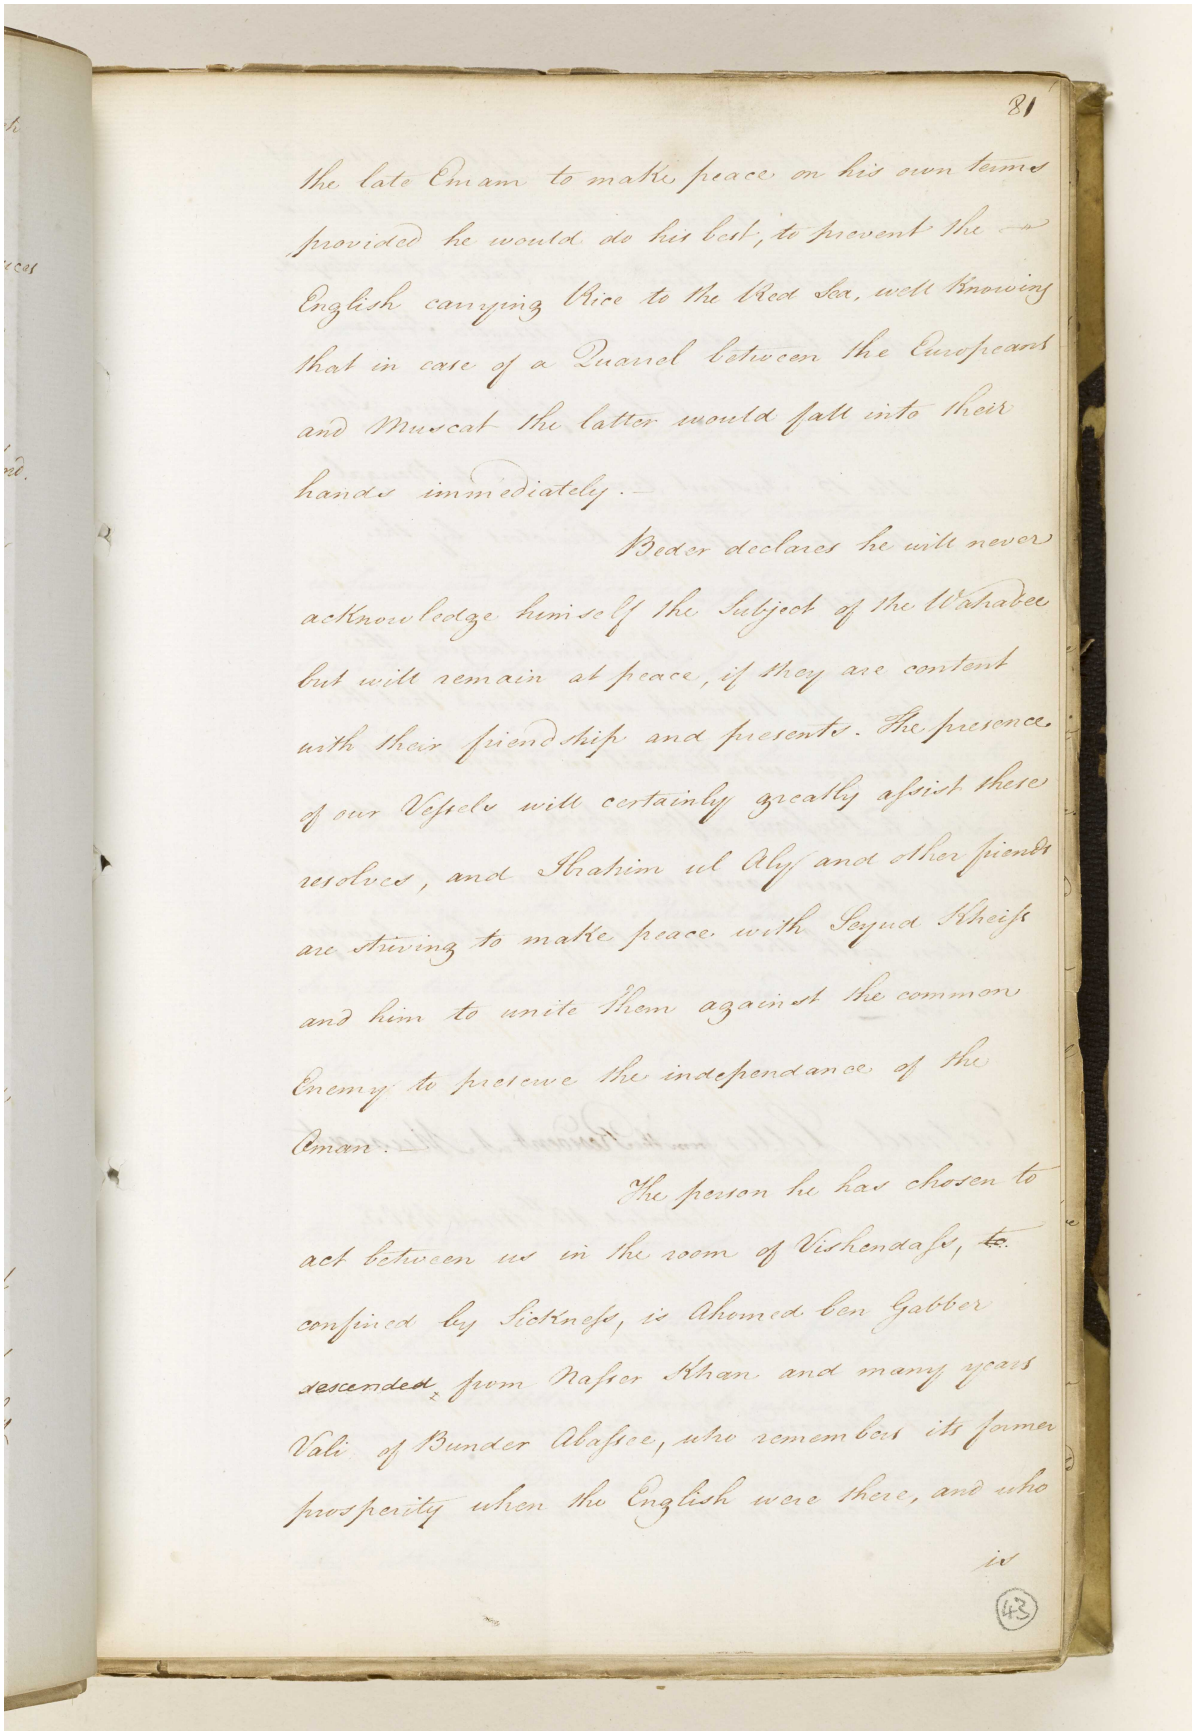 81
the late Emam to make peace on his own terms
provided he would do his best, to prevent the
English carrying Rice to the Red Sea, well Knowing
that in case of a Quarrel between the Europeans
and Muscat the latter would fall into their
hands immediately. –
Beder declares he will never
acknowledge himself the Subject of the Wahabee
but will remain at peace, if they are content
with their friendship and presents. The presence
of our Veſsels will certainly greatly aſsist these
resolves, and Ibrahim ul Aly and other friends
are striving to make peace with Seyud Kheiſs
and him to unite them against the common
Enemy to preserve the independance of the
Oman. –
The person he has chosen to
act between us in the room of Vishendaſs, to
confined by Sickneſs, is Ahomed ben Gabber
descended, from Naſser Khan and many years
Vali of Bunder Abaſsee, who remembers its former
prosperity when the English were there, and who
is
43